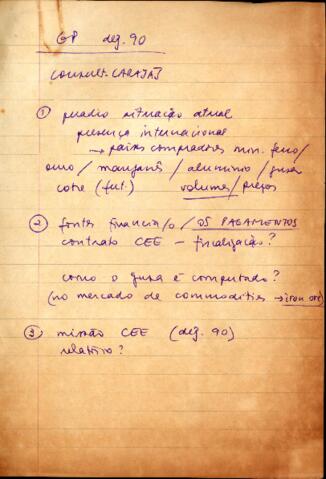 GP dez. 90
CONSULT. CARAJÁS
① quadro situação atual
presença internacional
→ países compradores min. ferro/
ouro/manganês/alumínio/gusa
cobre (fut.) volumes/preços
② fontes financia/o/OS PAGAMENTOS
contrato CEE – fiscalização?
como o gusa é computado?
(no mercado de commodities → iron ore)
③ missão CEE (dez. 90)
relatório?